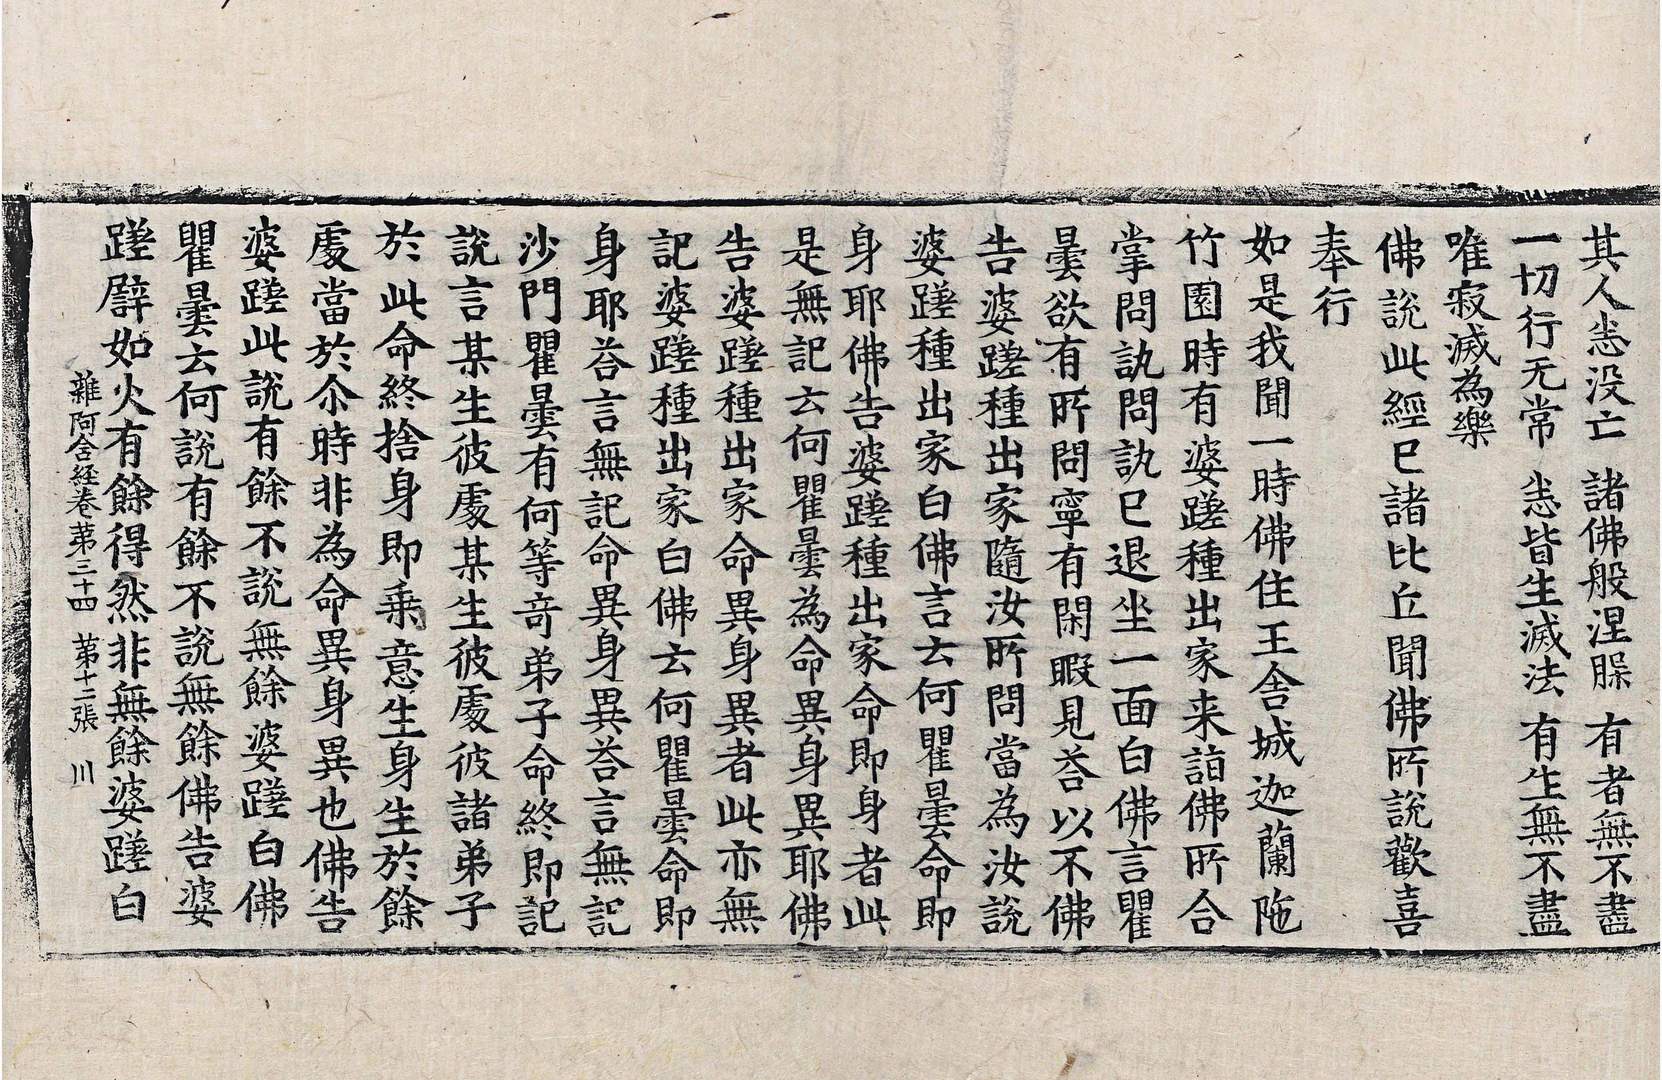 其人恙没亡　諸佛般涅脵　有者無不盡
一切行无常　恙皆生滅法　有生無不盡
唯寂滅為樂
佛說此經已諸比丘聞佛所說歡喜
奉行
如是我聞一時佛住王舍城迦蘭陁
竹園時有婆蹉種出家来詣佛所合
掌問訊問訊已退坐一面白佛言瞿
曇欲有所問寧有閑暇見荅以不佛
告婆蹉種出家隨汝所問當為汝說
婆蹉種出家白佛言云何瞿曇命即
身耶佛告婆蹉種出家命即身者此
是無記云何瞿曇為命異身異耶佛
告婆蹉種出家命異身異者此亦無
記婆蹉種出家白佛云何瞿曇命即
身耶荅言無記命異身異荅言無記
沙門瞿曇有何等竒弟子命終即記
說言某生彼處某生彼處彼諸弟子
於此命終捨身即乗意生身生於餘
處當於尒時非為命異身異也佛告
婆蹉此說有餘不說無餘婆蹉白佛
瞿曇云何說有餘不說無餘佛告婆
蹉譬如火有餘得然非無餘婆蹉白
雜阿含経卷第三十四　第十二張　川